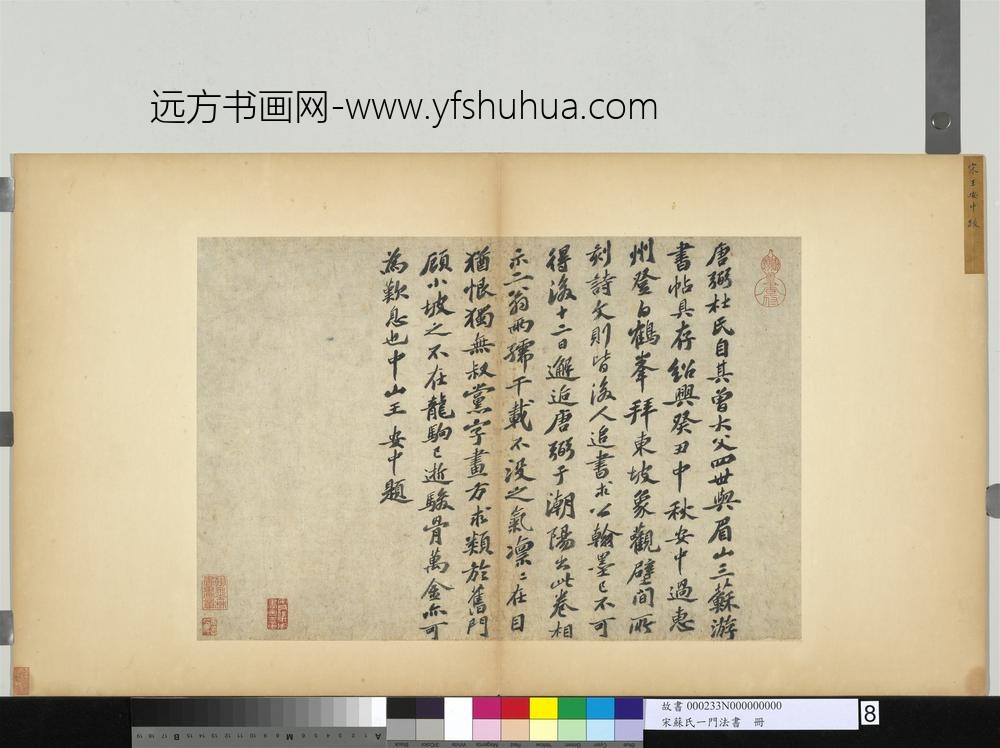 远方书画网-www.yfshuhua.com
宋王安中跋
唐弼杜氏自其曾大父四世與眉山三蘇游
書帖具存紹興癸丑中秋安中過惠
州登白鶴峯拜東坡象觀壁間所
刻詩文則皆後人追書求公翰墨已不可
得後十二日邂逅唐弼于潮陽出此卷相
示二翁兩孺千載不没之氣凛〻在目
猶恨獨無叔黨字畫方求類於舊門
顧小坡之不在龍駒已逝駿骨萬金亦可
為歎息也中山王安中題
故書 000233N000000000
宋蘇氏一門法書 冊
8